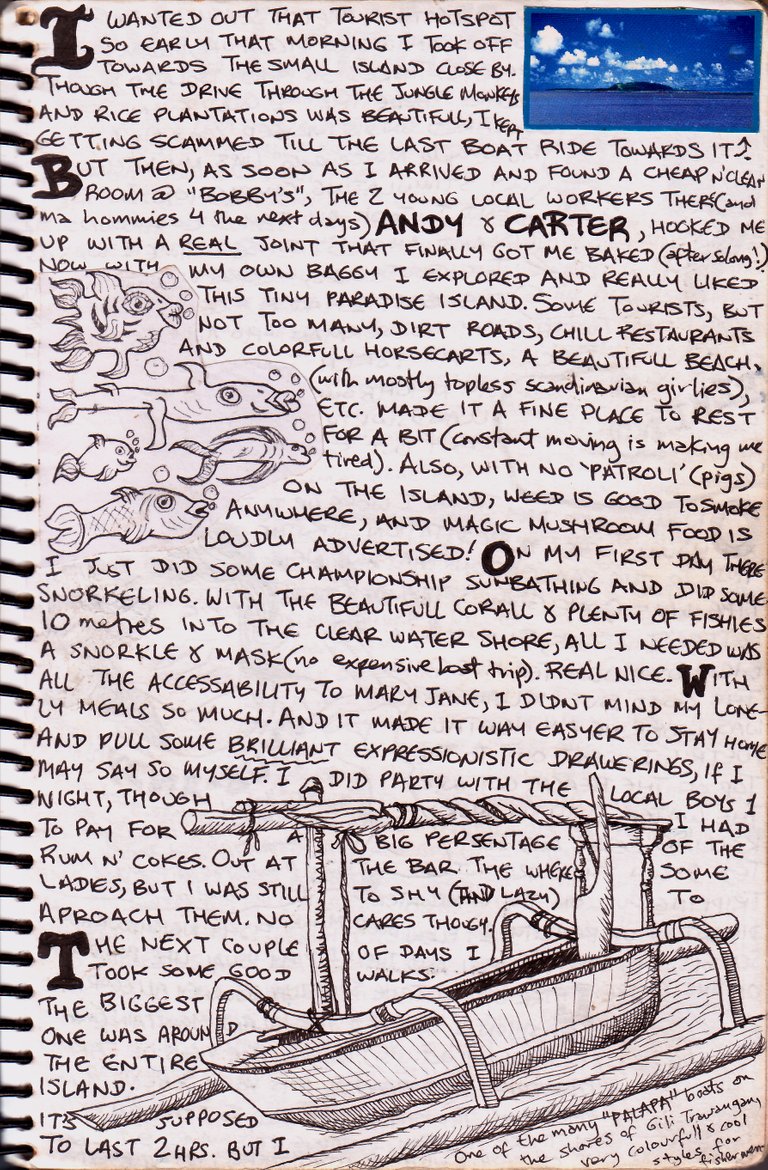 I WANTED OUT THAT TOURIST HOTSPOT
SO EARLY THAT MORNING I TOOK OFF
TOWARDS THE SMALL ISLAND CLOSE BY.
THOUGH THE DRIVE THROUGH THE JUNGLE MONKEYS
AND RICE PLANTATIONS WAS BEAUTIFUL, I KEPT
GETTING SCAMMED TILL THE LAST BOAT RIDE TOWARDS IT↑.
BUT THEN, AS SOON AS I ARRIVED AND FOUND A CHEAP N'CLEAN
ROOM @ "BOBBY'S", THE 2 YOUNG LOCAL WORKERS THERE (and
ma hommies 4 the next days) ANDY & CARTER, HOOKED ME
UP WITH A REAL JOINT THAT FINALLY GOT ME BAKED (after so long!)
NOW WITH MY OWN BAGGY I EXPLORED AND REALLY LIKED
THIS TINY PARADISE ISLAND. SOME TOURISTS, BUT
NOT TOO MANY, DIRT ROADS, CHILL RESTAURANTS
AND COLORFULL HORSECARTS, A BEAUTIFULL BEACH,
(with mostly topless scandinavian girlies),
ETC. MADE IT A FINE PLACE TO REST
FOR A BIT (constant moving is making me
tired). ALSO, WITH NO 'PATROLI' (pigs)
ON THE ISLAND, WEED IS GOOD TO SMOKE
ANYWHERE, AND MAGIC MUSHROOM FOOD IS
LOUDLY ADVERTISED! ON MY FIRST DAY THERE
I JUST DID SOME CHAMPIONSHIP SUNBATHING AND DID SOME
SNORKELING. WITH THE BEAUTIFULL CORALL & PLENTY OF FISHIES
10 metres INTO THE CLEAR WATER SHORE, ALL I NEEDED WAS
A SNORKLE & MASK (no expensive boat trip). REAL NICE. WITH
ALL THE ACCESSABILITY TO MARY JANE, I DIDNT MIND MY LONE-
LY MEALS SO MUCH. AND IT MADE IT WAY EASYER TO STAY HOME
AND PULL SOME BRILLIANT EXPRESSIONISTIC DRAWERINGS, IF I
MAY SAY SO MYSELF. I DID PARTY WITH THE LOCAL BOYS 1
NIGHT, THOUGH I HAD
TO PAY FOR A BIG PERSENTAGE OF THE
RUM N' COKES. OUT AT THE BAR THE WHERE SOME
LADIES, BUT I WAS STILL TO SHY (AND LAZY) TO
APROACH THEM. NO CARES THOUGH.
THE NEXT COUPLE OF DAYS I
TOOK SOME GOOD WALKS.
THE BIGGEST
ONE WAS AROUND
THE ENTIRE
ISLAND.
IT'S SUPPOSED
TO LAST 2HRS. BUT I
One of the many "PALAPA" boats on
the shores of Gili Trawangan,
very colourfull & cool
styles for
fishermen